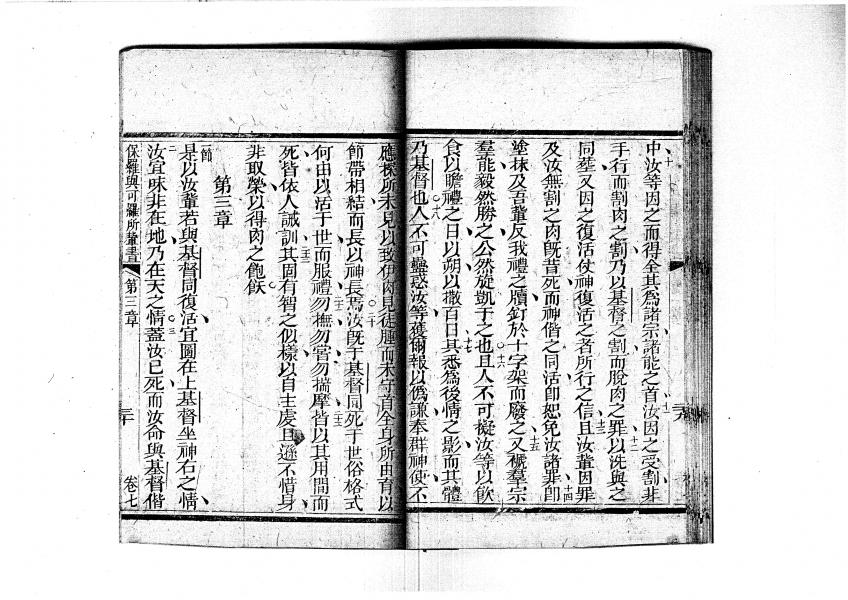 中汝等因之而得全其爲諸宗諸能之首汝因之受割非
手行而割肉之割乃以基督之割而脫肉之罪以洗與之
同塟又因之復活仗神復活之者所行之信且汝輩因罪
及汝無割之肉旣昔死而神偕之同活卽恕免汝諸罪卽
塗抹及吾輩反我禮之牘釘於十字架而廢之又襯羣宗
羣能毅然勝之公然旋凱于之也且人不可擬汝等以飲
食以瞻禮之日以朔以撒百日其悉爲後情之影而其體
乃基督也人不可蠱惑汝等獲爾報以僞謙奉群神使不
應探所未見以致伊肉見徒腫而未守首全身所由育以
節帶相結而長以神長焉汝旣于基督同死于世俗格式
何由以活于世而服禮勿撫勿嘗勿揣摩皆以其用間而
死皆依人誡訓其固有智之似樣以自主虔且遜不惜身
非取榮以得肉之飽飫
第三章
節
是以汝輩若與基督同復活宜圖在上基督坐神右之情
汝宜味非在地乃在天之情蓋汝已死而汝命與基督偕
保羅與可羅所輩書 第三章 卷七